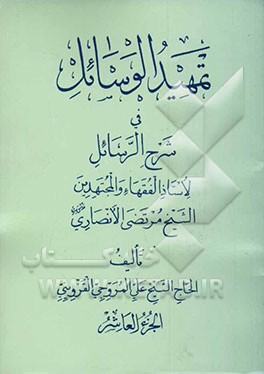 تمهيد الوسائل
في
شرح الرسائل
لأستاذ الفقهاء والمجتهدين
الشيخ مرتضى الأنصاري
تأليف
الحاج الشيخ علي المروجي القزويني
الجزء العاشر